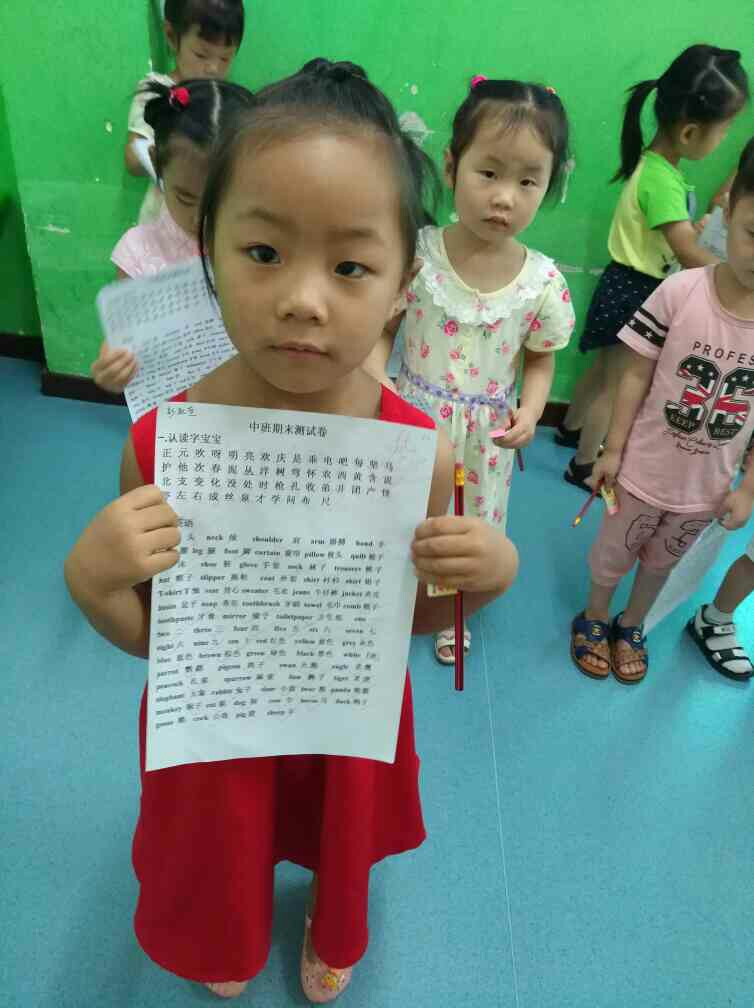 中班期末测试卷
一.认读字宝宝
正 元 吹 呀 明 亮 欢 庆 是 乖 电 吧 每 柴 马
护 他 次 春 泥 丛 洋 树 弯 怀 农 西 黄 含 说
北 支 变 化 没 处 时 枪 孔 收 弟 井 团 产 怪
左 右 成 丝 泉 才 学 问 布 尺
英语
头 neck 颈 shoulder 肩 arm 胳膊 hand 手
腰 leg 腿 foot 脚 curtain 窗帘 pillow 枕头 quilt 被子
床 shoe 鞋 glove 手套 sock 袜子 trousers 裤子
hat 帽子 slipper 拖鞋 coat 外套 shirt 衬衫 skirt 裙子
T-shirt T恤 vest 背心 sweater 毛衣 jeans 牛仔裤 jacket 夹克
basin 盆子 soap 香皂 toothbrush 牙刷 towel 毛巾 comb 梳子
toothpaste 牙膏 mirror 镜子 toiletpaper 卫生纸 one 一
two 二 three 三 four 四 five 五 six 六 seven 七
eight 八 nine 九 ten 十 red 红色 yellow 黄色 grey 灰色
blue 蓝色 brown 棕色 green 绿色 black 黑色 white 白色
parrot 鹦鹉 pigeon 鸽子 swan 天鹅 eagle 老鹰
peacock 孔雀 sparrow 麻雀 lion 狮子 tiger 老虎
elephant 大象 rabbit 兔子 deer 小鹿 bear 熊 panda 熊猫
monkey 猴子 cat 猫 dog 狗 cow 牛 horse 马 duck 鸭子
goose 鹅 cock 公鸡 pig 猪 sheep 羊
PROFES
36
KEEP